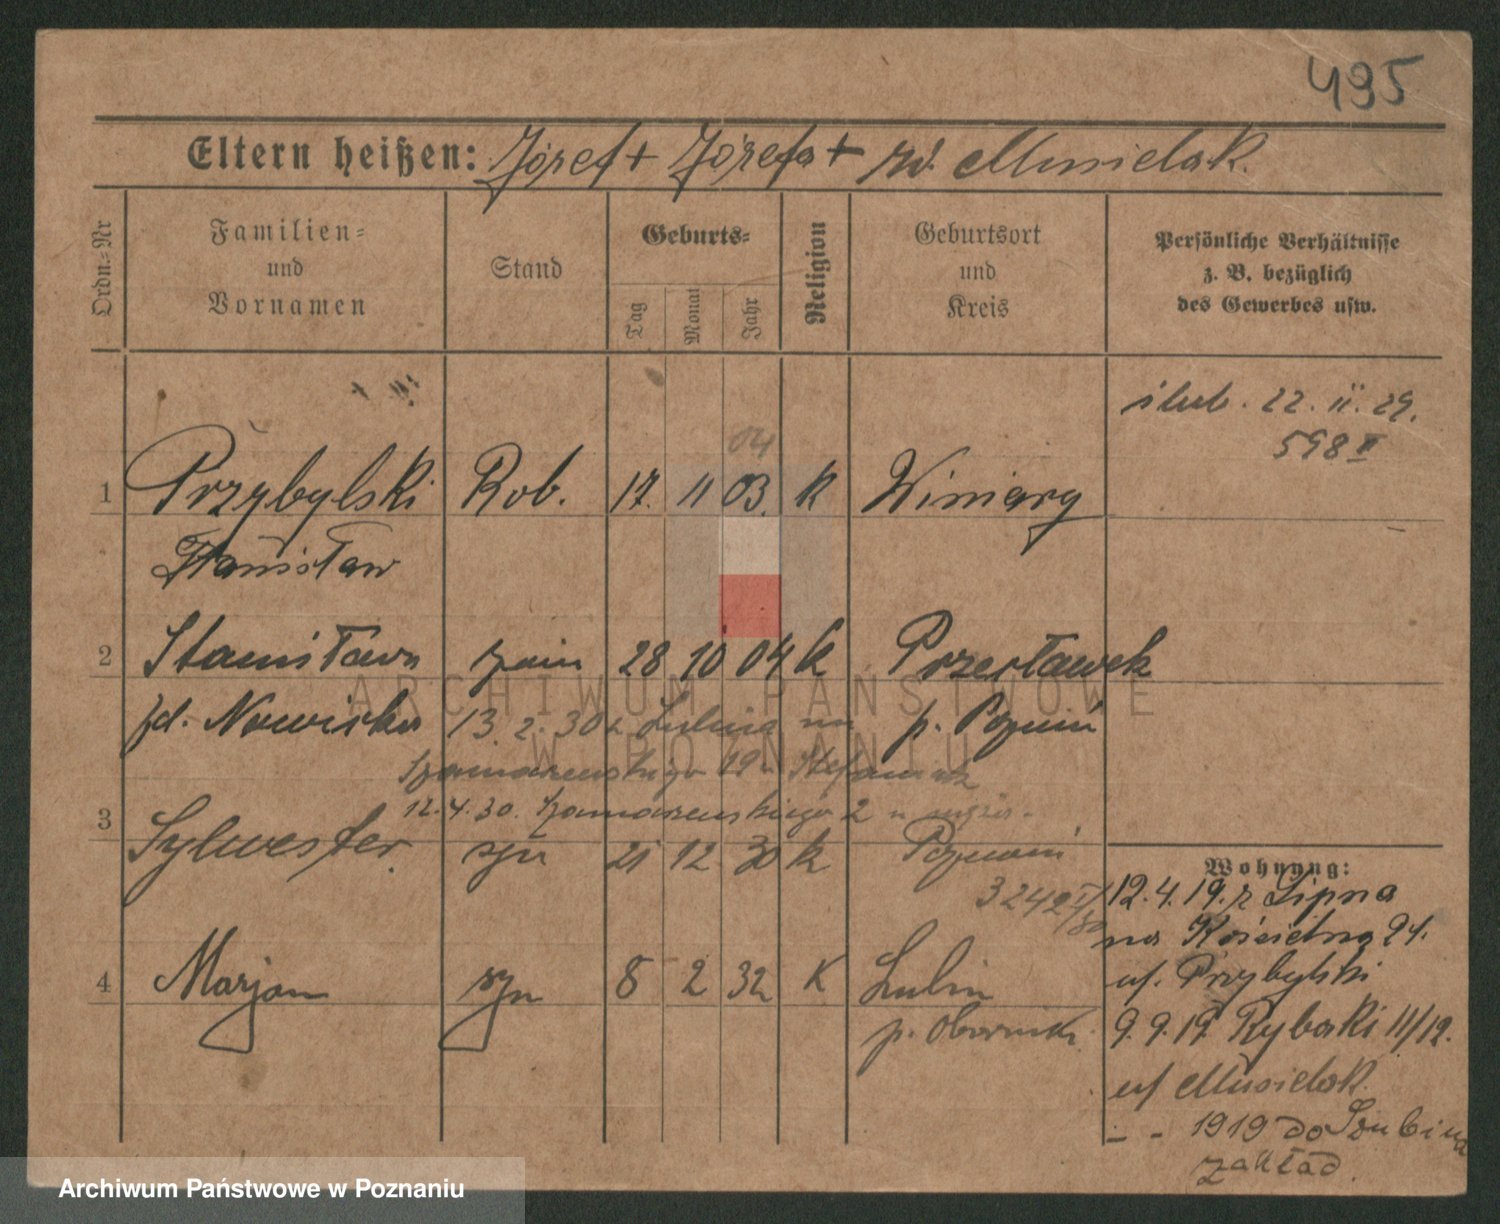 495
Eltern heißen: Józef + Józefa + rd. Musielak.
Ordn.-Nr
Familien- und Vornamen
Stand
Geburts-
Tag
Monat
Jahr
Religion
Geburtsort und Kreis
Persönliche Verhältnisse z. B. bezüglich des Gewerbes usw.
ślub. 22. II. 29.
598 II
04
1 Przybylski Rob. 17. 11 03. K Winiary
Stanisław
2 Stanisława 28 10 04 K Przecławek
zd. Nowicka 13. 2. 30 z Lubina na p. Poznań
Szamarzewskiego 19a
12.4.30. Szamarzewskiego 2
3 Sylwester. syn 21 12 30 K Poznań
3242
Wohnung:
12.4.19. z Lipna
na Kościelna 24.
uf. Przybylski
4 Marjan syn 8 2 32 K Lubin
p. Oborniki
9.9.19. Rybaki 11/12.
uf Musielak.
- - 1919 do Szubina
zakład.
ARCHIWUM PAŃSTWOWE
W POZNANIU
Archiwum Państwowe w Poznaniu